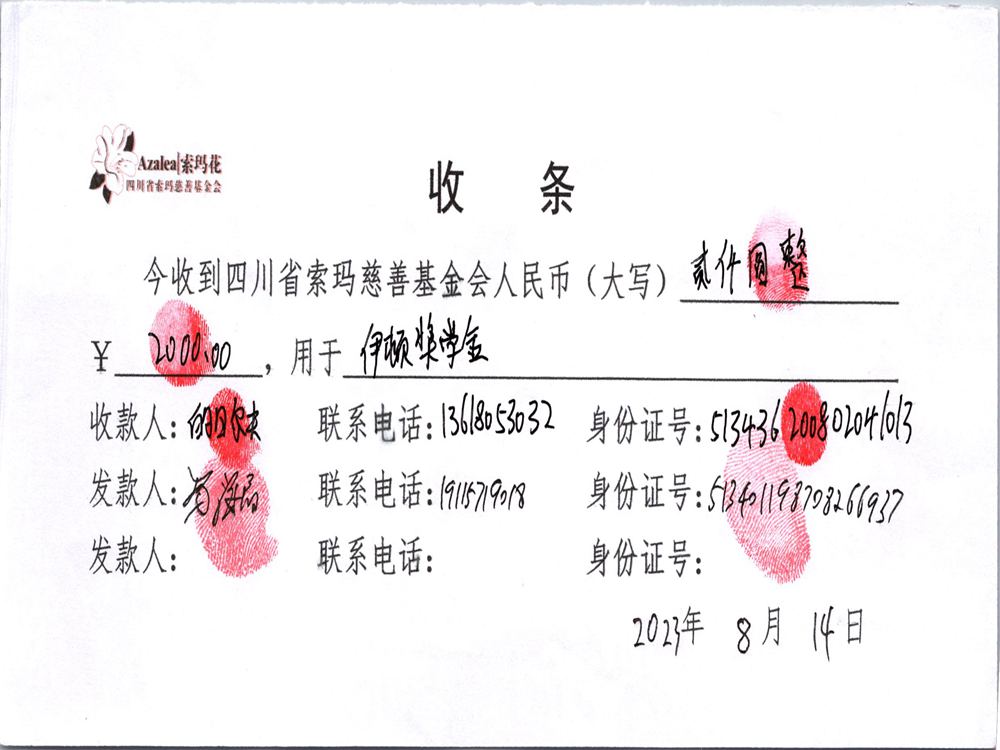 Azalea|索玛花
四川省索玛慈善基金会
收 条
今收到四川省索玛慈善基金会人民币（大写）贰仟圆整
￥2000.00，用于伊顿奖学金
收款人： 联系电话：13618053032 身份证号：513436200802041013
发款人： 联系电话：19115719018 身份证号：513401198708266937
发款人： 联系电话： 身份证号：
2023年 8月 14日